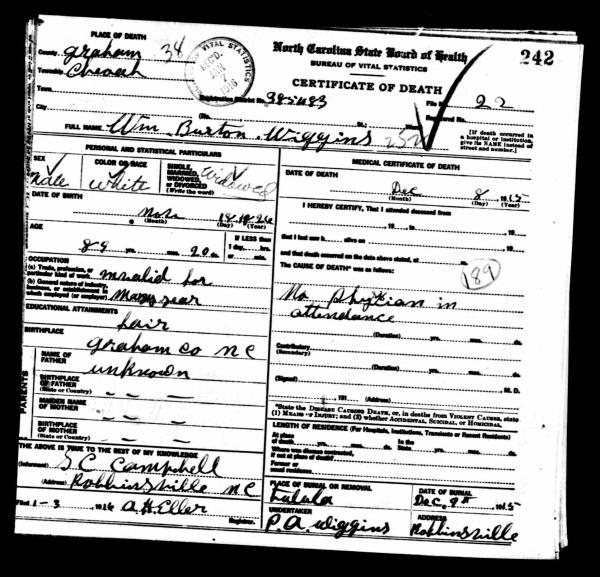 PLACE OF DEATH
County Graham 38
Township Cheoah
Town
City
BUREAU OF VITAL STATISTICS
REC'D. JAN 1916
North Carolina State Board of Health
BUREAU OF VITAL STATISTICS
CERTIFICATE OF DEATH
242
Registration District No.
File No. 22
Registered No.
St.;
[If death occurred in a hospital or institution, give its NAME instead of street and number.]
FULL NAME Wm. Burton Wiggins
PERSONAL AND STATISTICAL PARTICULARS
SEX
Male
COLOR OR RACE
White
SINGLE, MARRIED, WIDOWED, OR DIVORCED (Write the word)
Widowed
DATE OF BIRTH
(Month) (Day) (Year)
AGE
yrs. mos. 20 ds.
IF LESS than 1 day, hrs. or min.
OCCUPATION
(a) Trade, profession, or particular kind of work invalid for
(b) General nature of industry, business, or establishment in which employed (or employer) Many year
EDUCATIONAL ATTAINMENTS
fair
BIRTHPLACE
Graham Co N C
PARENTS
NAME OF FATHER
unknown
BIRTHPLACE OF FATHER
(State or Country)
MAIDEN NAME OF MOTHER
BIRTHPLACE OF MOTHER
(State or Country)
THE ABOVE IS TRUE TO THE BEST OF MY KNOWLEDGE
(Informant) S C Campbell
(Address) Robbinsville N C
Filed 1-3 1916 A H Eller
Registrar.
MEDICAL CERTIFICATE OF DEATH
DATE OF DEATH
Dec 8 1915
(Month) (Day) (Year)
I HEREBY CERTIFY, That I attended deceased from
, 19 , to , 19
that I last saw h alive on , 19
and that death occurred on the date above stated, at m.
The CAUSE OF DEATH* was as follows:
189
No physician in
attendance
(Duration) yrs. mos. ds.
Contributory
(Secondary)
(Duration) yrs. mos. ds.
(Signed) M. D.
191 (Address)
*State the DISEASE CAUSING DEATH, or, in deaths from VIOLENT CAUSES, state (1) MEANS OF INJURY; and (2) whether ACCIDENTAL, SUICIDAL, OR HOMICIDAL.
LENGTH OF RESIDENCE (For Hospitals, Institutions, Transients or Recent Residents)
At place of death yrs. mos. ds. In the State yrs. mos. ds.
Where was disease contracted, if not at place of death?
Former or usual residence
PLACE OF BURIAL OR REMOVAL
DATE OF BURIAL
Dec. 9th 1915
UNDERTAKER
P. A. Wiggins
ADDRESS
Robbinsville